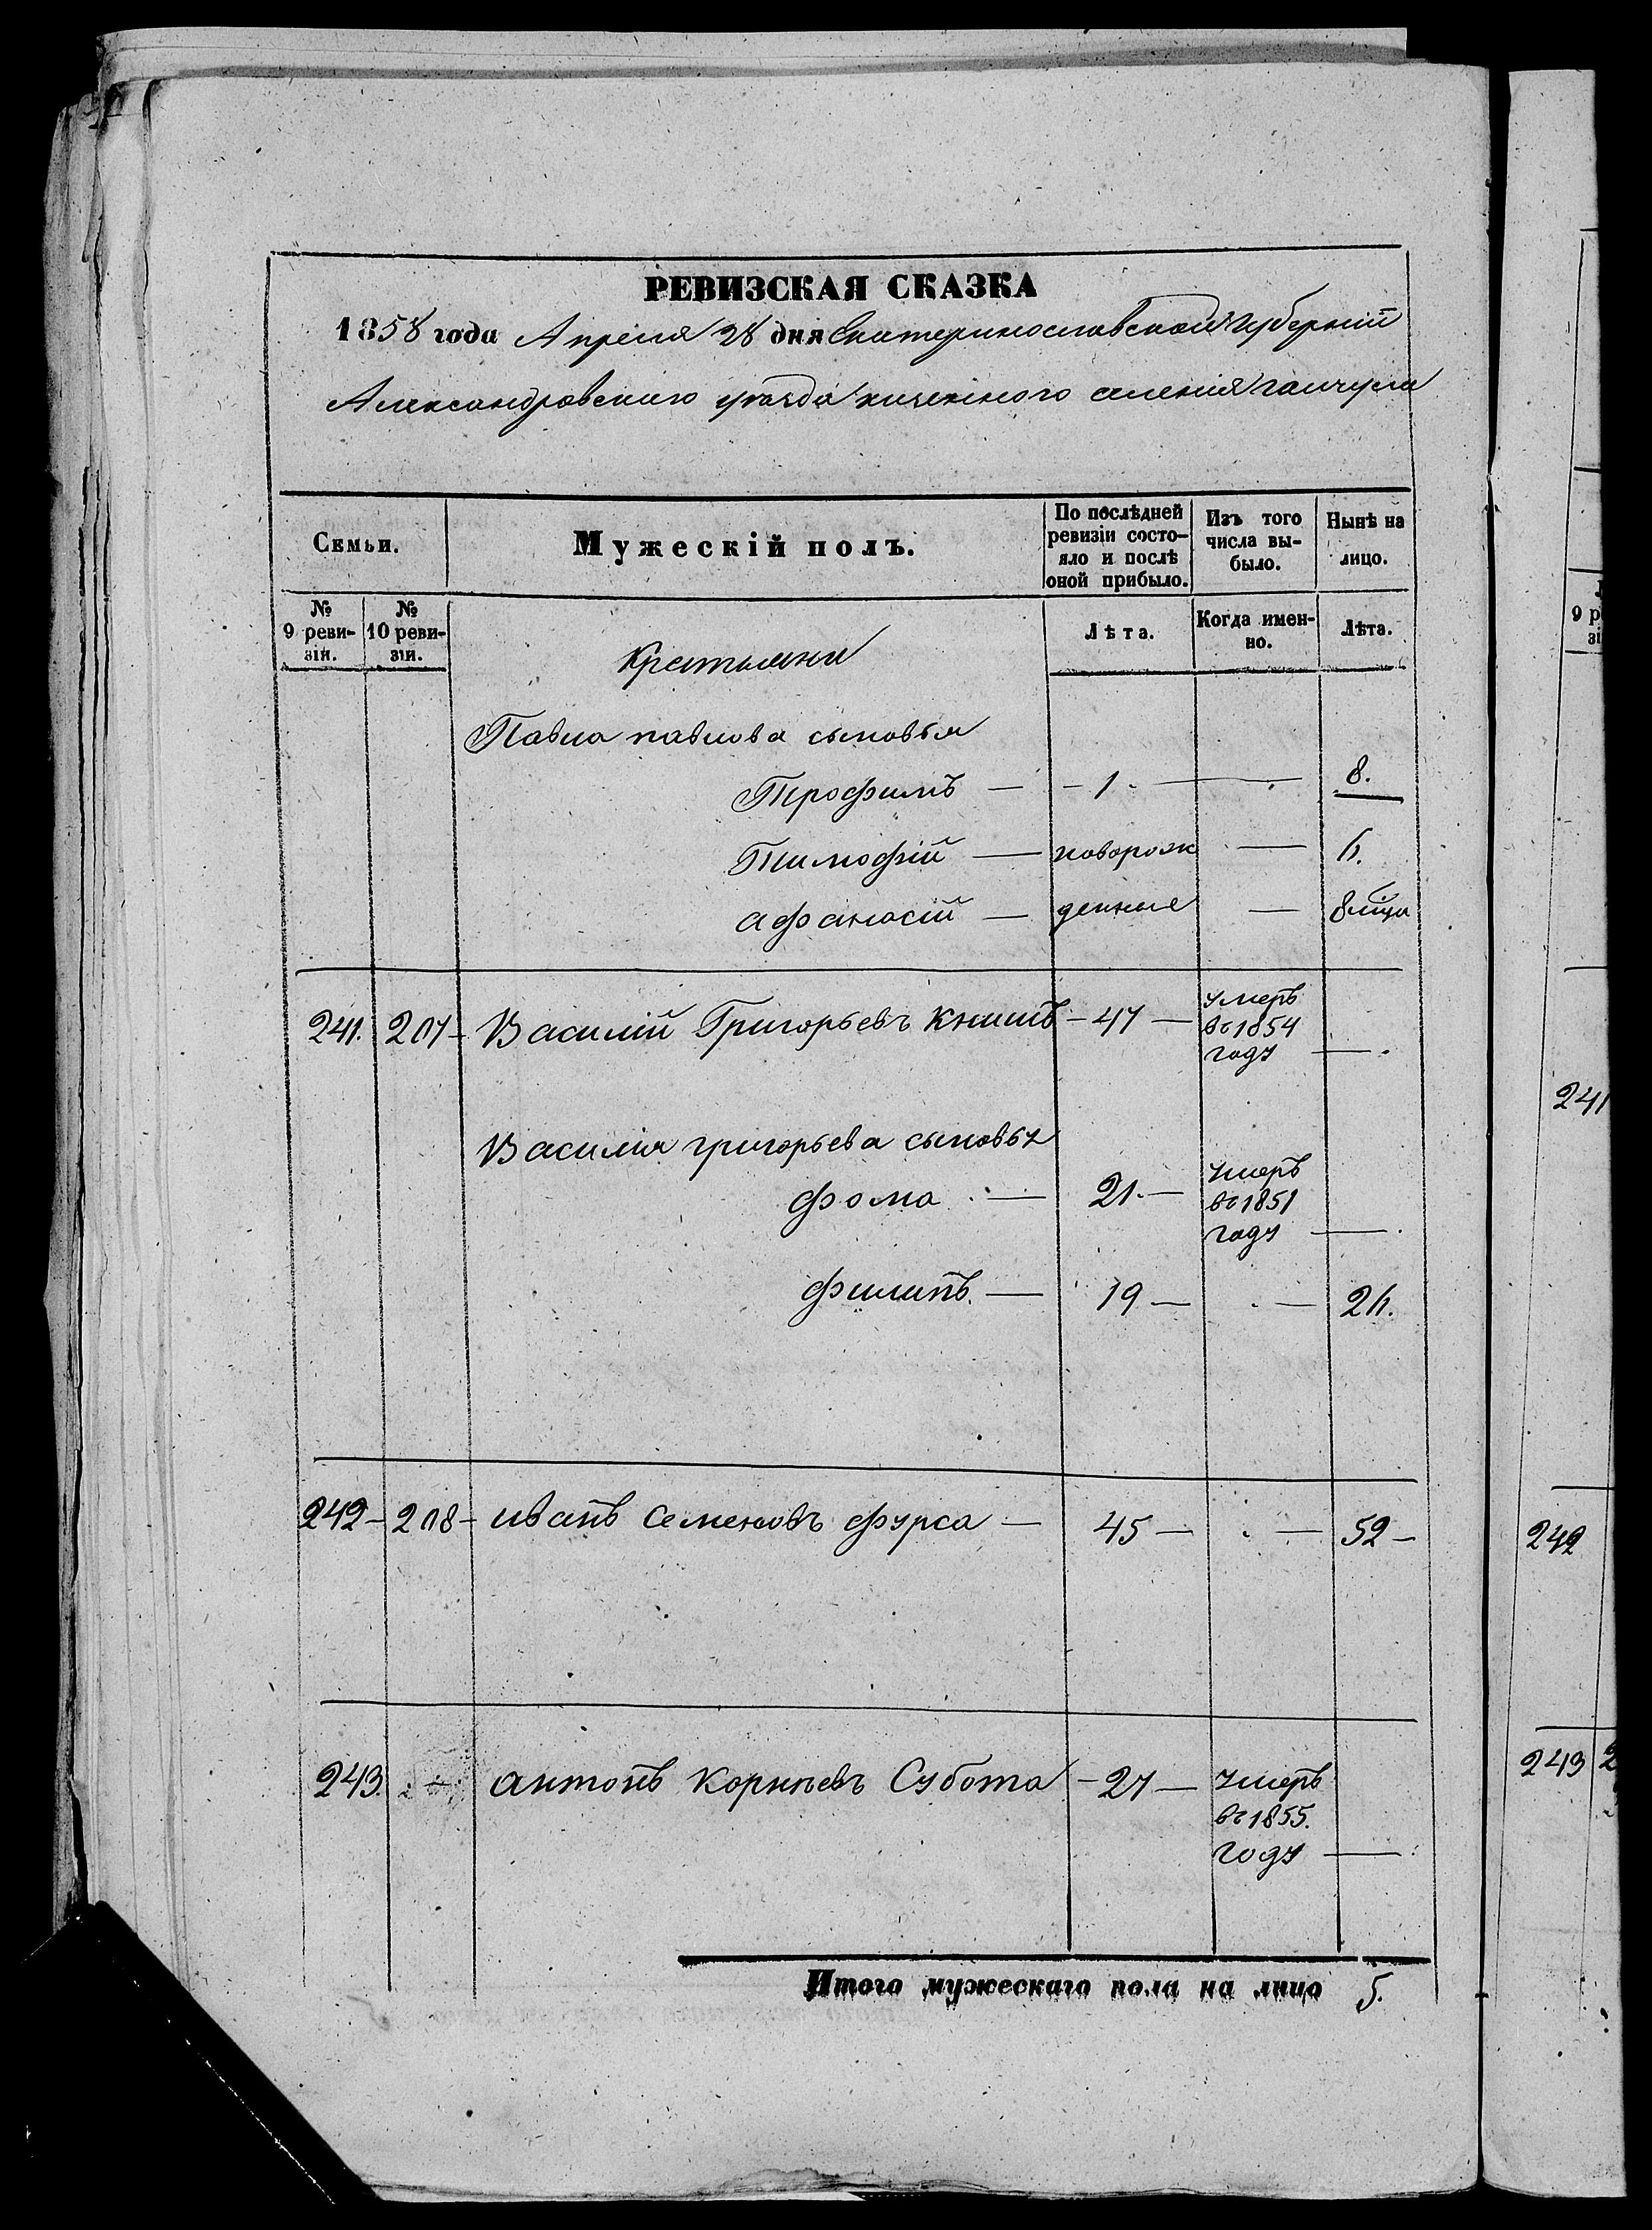 РЕВИЗСКАЯ СКАЗКА
1858 года Апреля 28 дня Екатеринославской Губерніи
Александровского уѣзда казенного селенія Гайчула
Семьи.
Мужескій полъ.
По послѣдней ревизіи состо-
яло и послѣ
оной прибыло.
Изъ того
числа вы-
было.
Нынѣ на
лицо.
№
9 реви-
зіи.
№
10 реви-
зіи.
Крестьяне
Лѣта.
Когда имен-
но.
Лѣта.
Павла павлова сыновья
Трофимъ — - 1. — 8.
Тимофій — новорож — 6.
афанасій — денные — 8 м͠ца
241. 207 - Василій Григорьевъ Книшъ - 47 — умеръ
въ 1854
году — .
Василія григорьева сыновья
фома — 21. — умеръ
въ 1851
году — .
филипъ. — 19 — . — 26.
242 - 208 - иванъ Семеновъ фурса — 45 — . — 52 -
243. антонъ Корнѣевъ Субота - 27 — умеръ
въ 1855.
году — .
Итого мужескаго пола на лицо 5.
9 р
зі
241
242
243 2